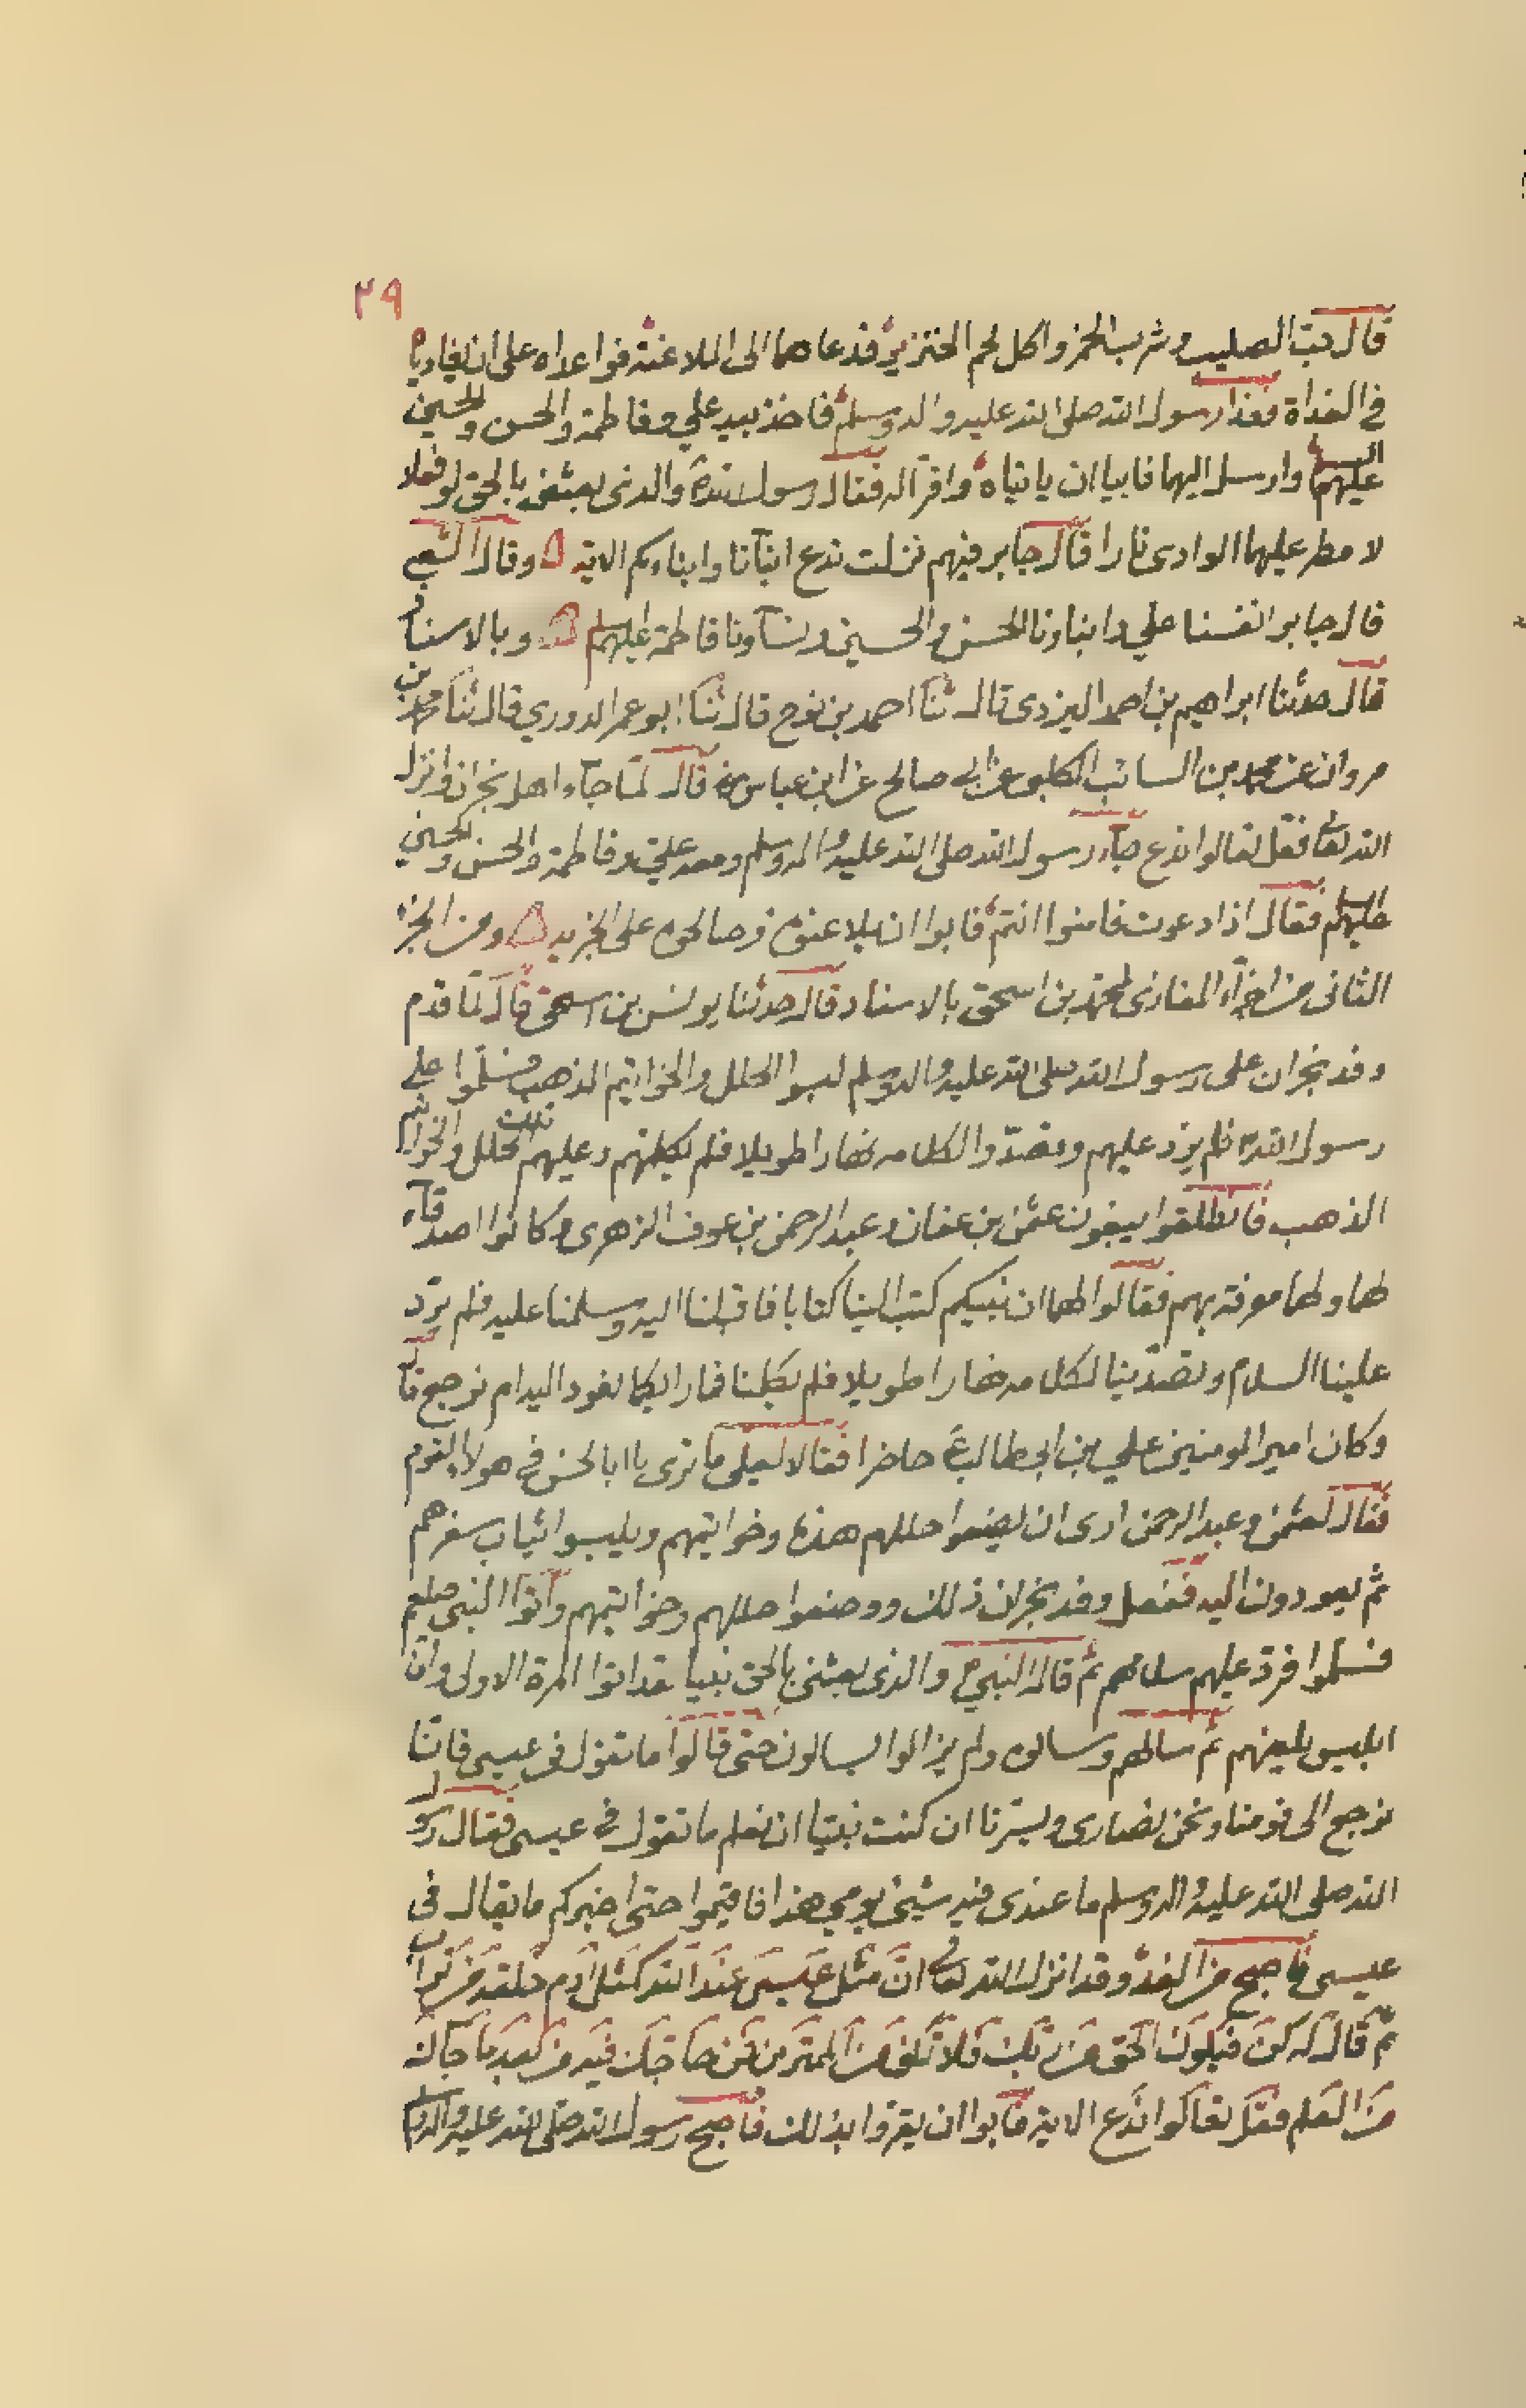 ٢٩
قال حب الصليب وشرب الخمر واكل لحم الخنزير فدعاهما الى الملاعنة فواعداه على ان يغادياه
في الغداة فغدا رسول الله صلى الله عليه واله وسلم فاخذ بيد علي وفاطمة والحسن والحسين
عليهم السلم وارسل اليهما فابيا ان ياتياه واقرا له فقال رسول الله والذى بعثنى بالحق لو فعلا
لا مطر عليهما الوادى نارا قال جابر فيهم نزلت ندع ابنآنا وابناءكم الاية وقال الشعبي
قال جابر انفسنا علي وابناونا الحسن والحسين ونسآونا فاطمة عليهم السلم وبالاسناد
قال حدثنا ابراهيم بن احمد اليزدى قال ثنا احمد بن نوح قال ثنا ابو عمر الدوري قال ثنا محمد بن
مروان عن محمد بن السائب الكلبى عن ابى صالح عن ابن عباس رض قال لما جآء اهل نجران وانزل
الله تعالى فقل تعالوا ندع جآء رسول الله صلى الله عليه واله وسلم ومعه علي وفاطمة والحسن والحسين
عليهم السلم فقال اذا دعوت فامنوا انتم فابوا ان يلاعنوه وصالحوه على الجزية ومن الجزء
الثانى من اجزآء المغازى لمحمد بن اسحق بالاسناد قال حدثنا يونس بن اسحق قال لما قدم
وفد نجران على رسول الله صلى الله عليه واله وسلم لبسوا الحلل والخواتيم الذهب وسلموا على
رسول الله فلم يرد عليهم وتصدوا لكلامه نهارا طويلا فلم يكلمهم وعليهم تلك الحلل والخواتيم
الذهب فانطلقوا يبغون عثمن بن عفان وعبد الرحمن بن عوف الزهرى وكانوا اصدقآء
لهما ولهما معرفة بهم فقالوا لهما ان نبيكم كتب الينا كتابا فاقبلنا اليه وسلمنا عليه فلم يرد
علينا السلام وتصدينا لكلامه نهارا طويلا فلم يكلمنا فما رايكما نعود اليه ام نرجع قال
وكان امير المومنين علي بن ابى طالب ع حاضرا فقالا لعلى ما ترى يا ابا الحسن في هولاء القوم
فقال لعثمن وعبد الرحمن ارى ان يضعوا حللهم هذه وخواتيمهم ويلبسوا ثياب سفرهم
ثم يعودون اليه ففعل وفد نجران ذلك ووضعوا حللهم وخواتيمهم وآتوا النبى صلعم
فسلموا فرد عليهم سلامهم ثم قال النبي والذى بعثنى بالحق نبيا لقد اتوا المرة الاولى وان
ابليس يلعنهم ثم سالهم وسالوه ولم يزالوا يسالونه حتى قالوا ما تقول فى عيسى فاننا
نرجع الى قومنا ونحن نصارى ويسرنا ان كنت نبيا ان نعلم ما تقول في عيسى فقال رسول
الله صلى الله عليه واله وسلم ما عندى فيه شيئ يومي هذا فاقيموا حتى اخبركم ما يقال فى
عيسى فاصبح من الغد وقد انزل الله تعالى ان مثل عيسى عند الله كمثل آدم خلقه من تراب
ثم قال له كن فيكون الحق من ربك فلا تكن من الممترين فمن حاجك فيه من بعد ما جآئك
من العلم فقل تعالوا ندع الاية فابوا ان يقروا بذلك فاصبح رسول الله صلى الله عليه واله وسلم